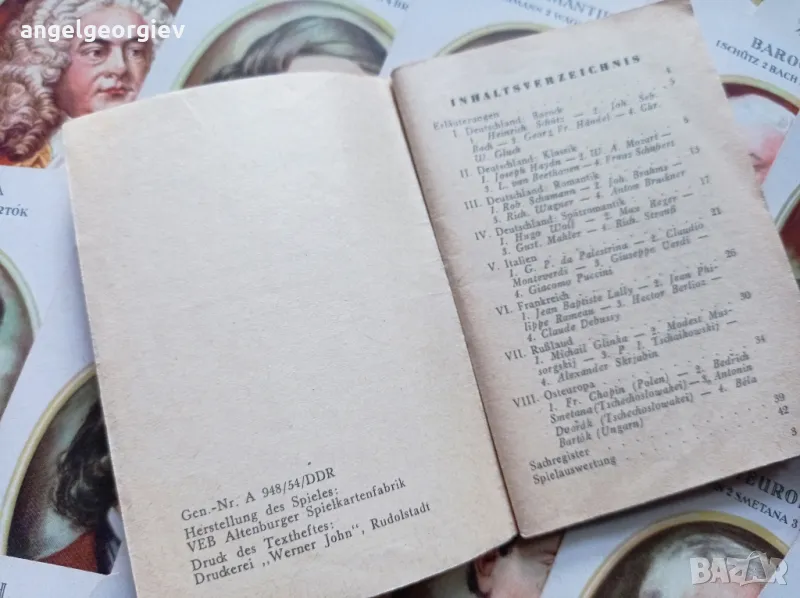 angelgeorgiev
BARO
1 SCHÜTZ 2 BACH
ARTÓK
INHALTSVERZEICHNIS
Erläuterungen 4
I. Deutschland: Barock 5
1. Heinrich Schütz — 2. Joh. Seb.
Bach — 3. Georg Fr. Händel — 4. Chr.
W. Gluck
II. Deutschland: Klassik
1. Joseph Haydn — 2. W. A. Mozart
3. L. van Beethoven — 4. Franz Schubert
III. Deutschland: Romantik 13
1. Rob Schumann — 2. Joh. Brahms
3. Rich. Wagner — 4. Anton Bruckner
IV. Deutschland: Spätromantik 17
1. Hugo Wolf — 2. Max Reger —
3. Gust. Mahler — 4. Rich. Strauß
V. Italien 21
1. G. P. da Palestrina — 2. Claudio
Monteverdi — 3. Giuseppe Verdi —
4. Giacomo Puccini
VI. Frankreich 26
1. Jean Baptiste Lully — 2. Jean Phi-
lippe Rameau — 3. Hector Berlioz —
4. Claude Debussy
VII. Rußland 30
1. Michail Glinka — 2. Modest Mus-
sorgskij — 3. P. I. Tschaikowskij —
4. Alexander Skrjabin
VIII. Osteuropa 34
1. Fr. Chopin (Polen) — 2. Bedrich
Smetana (Tschechoslowakei) — 3. Antonin
Dvořák (Tschechoslowakei) — 4. Béla
Bartók (Ungarn)
Sachregister 39
Spielauswertung 42
3
Gen.-Nr. A 948/54/DDR
Herstellung des Spieles:
VEB Altenburger Spielkartenfabrik
Druck des Textheftes:
Druckerei „Werner John", Rudolstadt
EURO
2 SMETANA 3
BAZAR